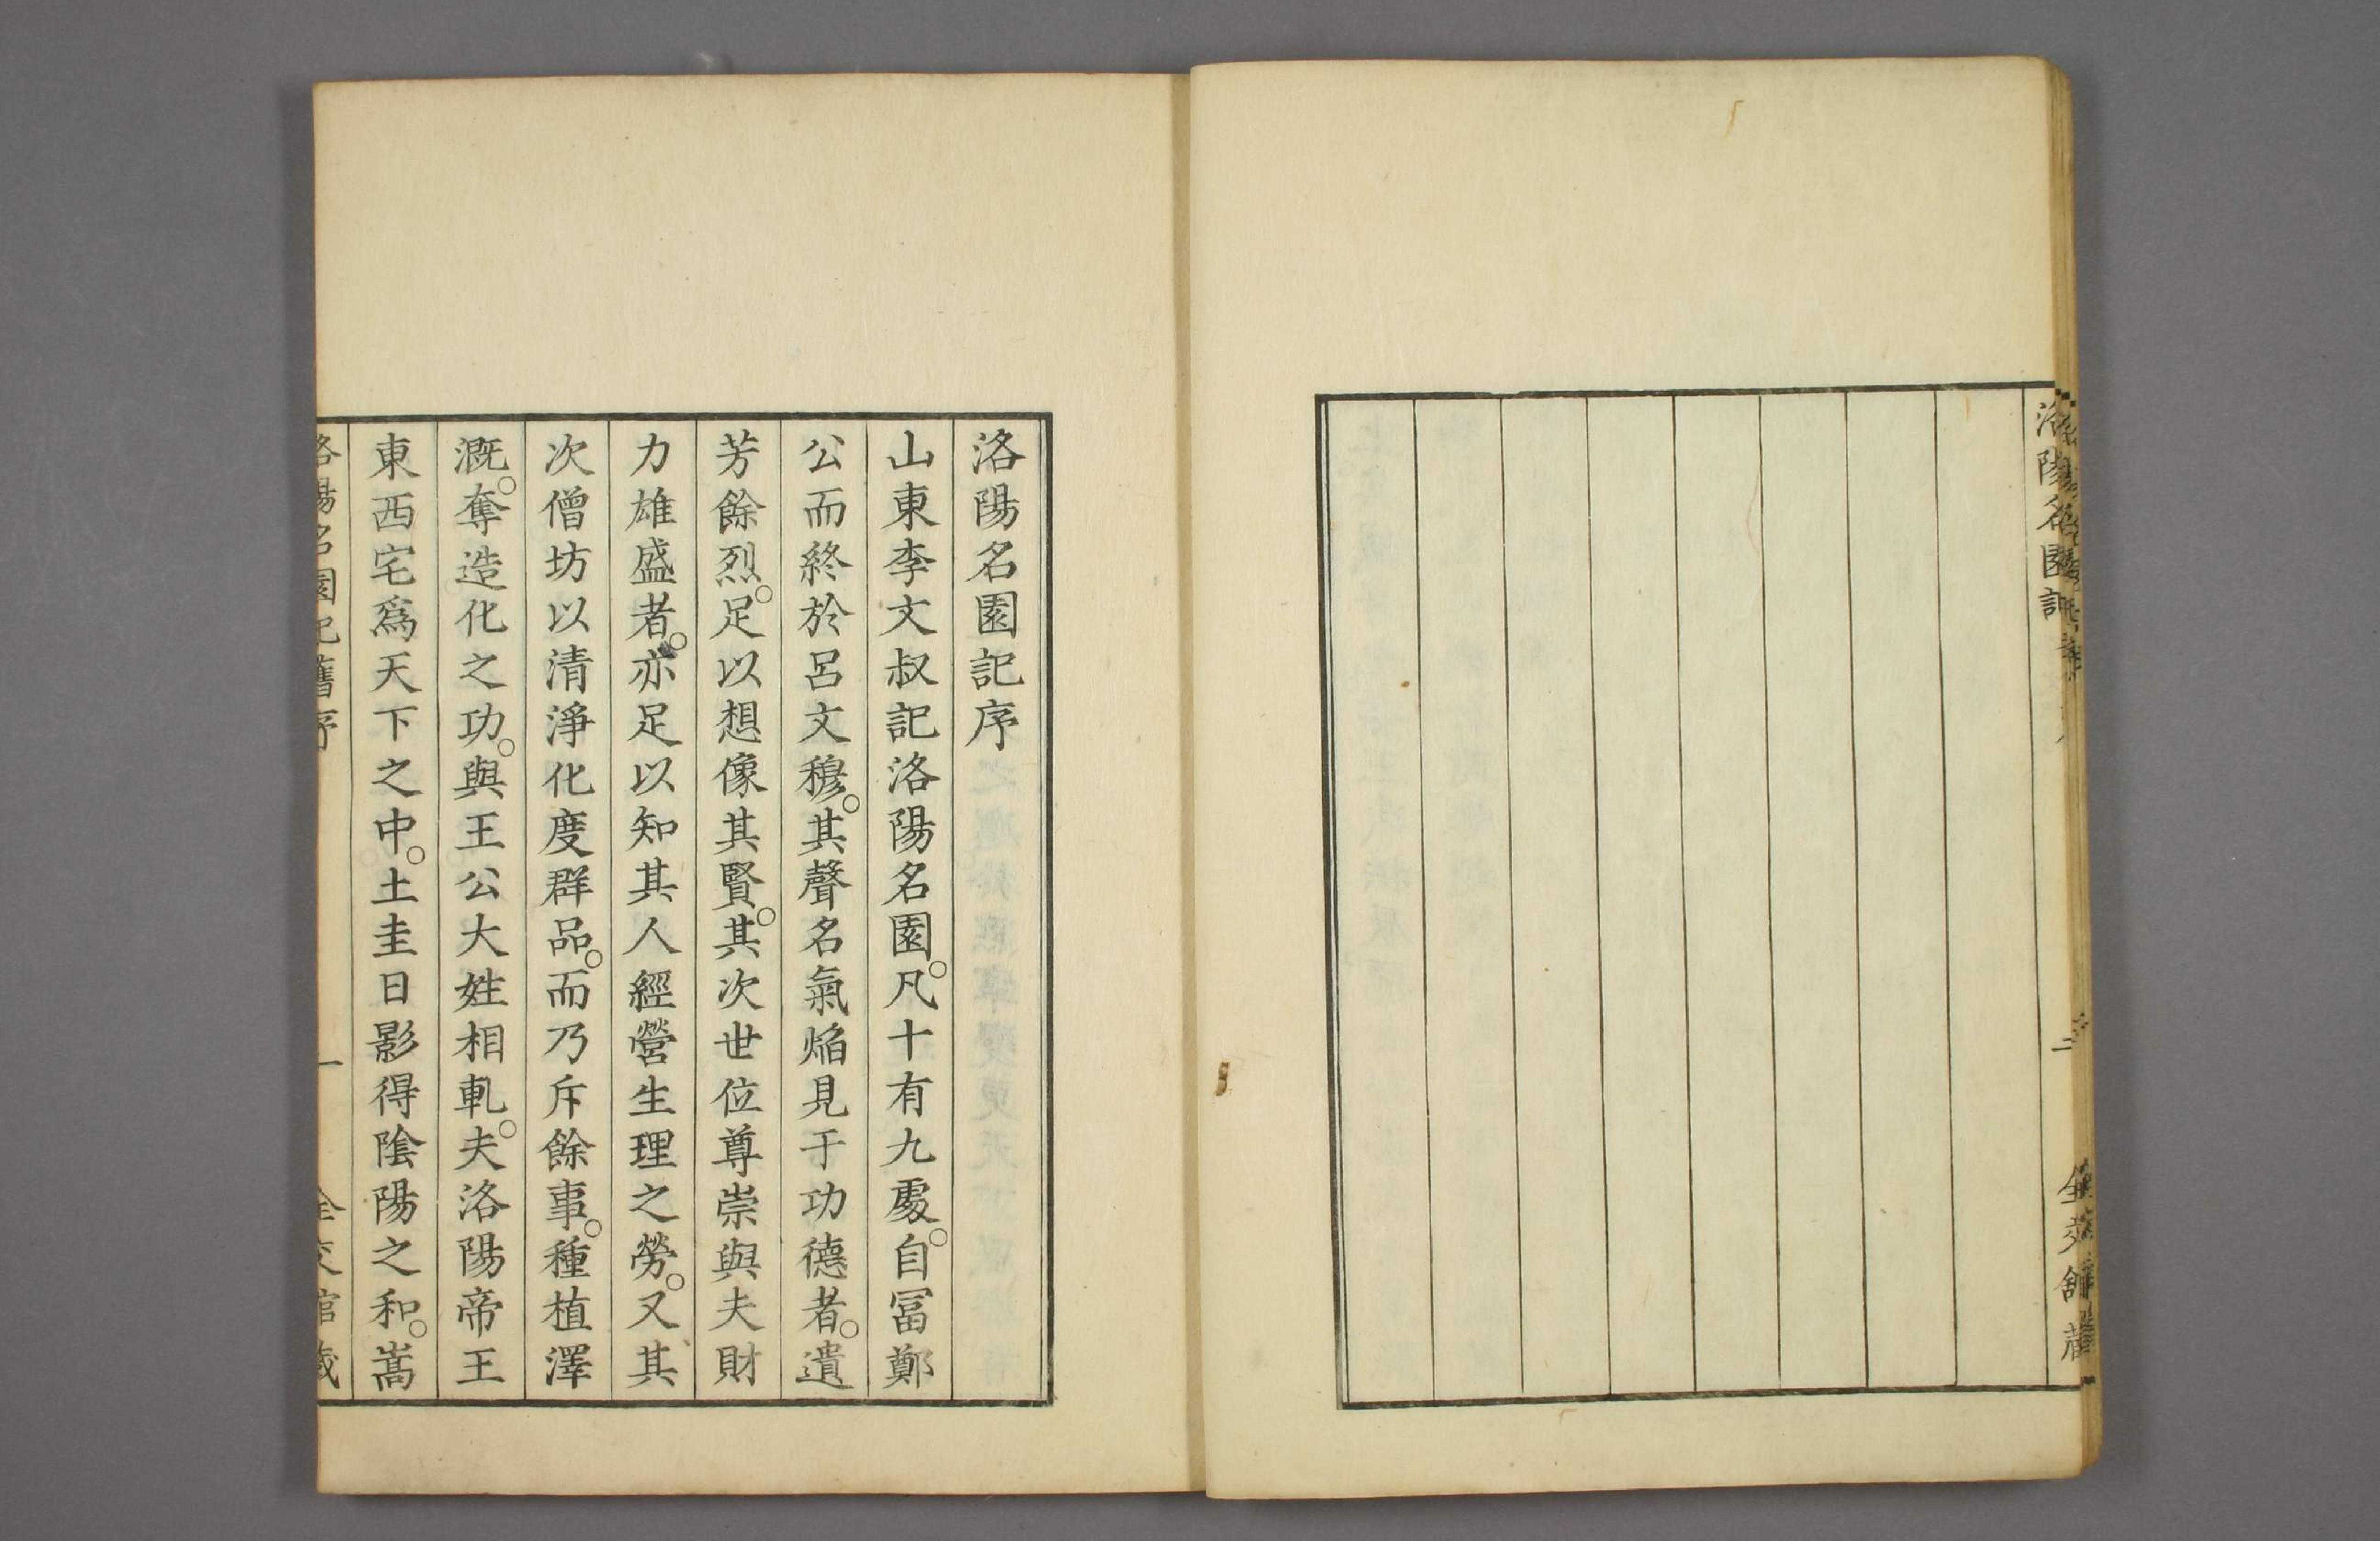 洛陽名園記
二
洛陽名園記序
山東李文叔記洛陽名園。凡十有九處。自冨鄭
公而終於呂文穆。其聲名氣焔見于功德者。遺
芳餘烈。足以想像其賢。其次世位尊崇與夫財
力雄盛者。亦足以知其人經營生理之勞。又其
次僧坊以清淨化度群品。而乃斥餘事。種植澤
溉。奪造化之功。與王公大姓相軋。夫洛陽帝王
東西宅爲天下之中。土圭日影得陰陽之和。嵩
洛陽名園記舊序 一